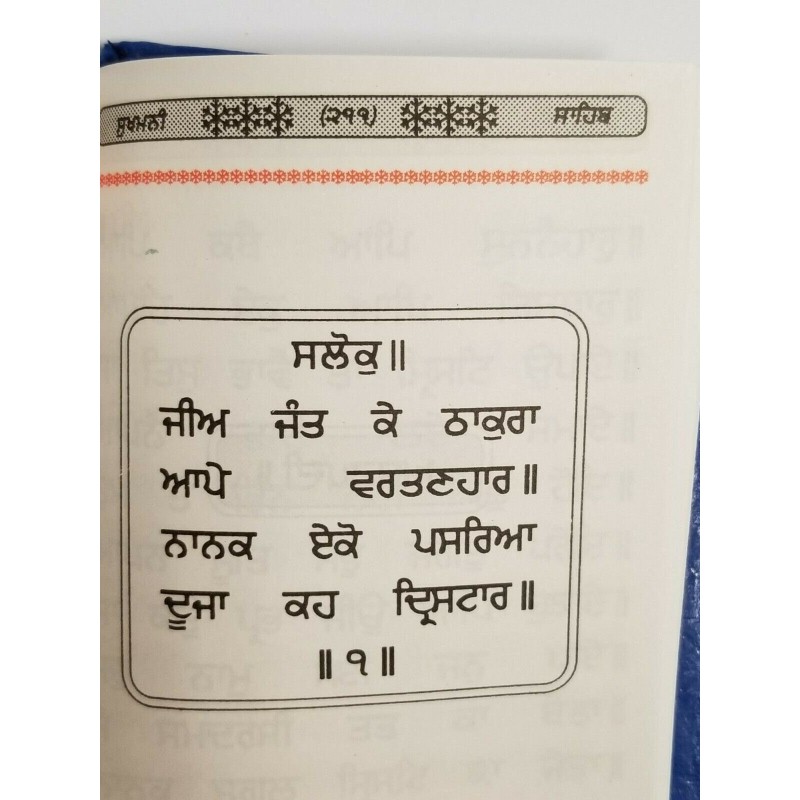 ਸੁਖਮਨੀ (੨੧੧) ਸਾਹਿਬ
ਸਲੋਕੁ॥
ਜੀਅ ਜੰਤ ਕੇ ਠਾਕੁਰਾ
ਆਪੇ ਵਰਤਣਹਾਰ॥
ਨਾਨਕ ਏਕੋ ਪਸਰਿਆ
ਦੂਜਾ ਕਹ ਦ੍ਰਿਸਟਾਰ॥
॥੧॥